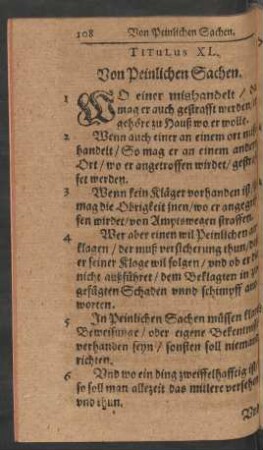 108 Von Peinlichen Sachen.
TITULUS XL.
Von Peinlichen Sachen.
1 WO einer mishandelt / da
mag er auch gestrafft werden, er
gehöre zu Hauß wo er wolle.
2 Wenn auch einer an einem ort miß-
handelt / So mag er an einem andern
Ort / wo er angetroffen wirdet / gestraf-
fet werden.
3 Wenn kein Kläger vorhanden ist / so
mag die Obrigkeit inen / wo er angegrif-
fen wirdet / von Ampts wegen straffen.
4 Wer aber einen wil Peinlichen an-
klagen / der muß versicherung thun / das
er seiner Klage wil folgen / und ob er die
nicht außführet / dem Beklagten in zu-
gefügten Schaden unnd schimpff ant-
worten.
5 In Peinlichen Sachen müssen klare
Beweisunge / oder eigene Bekentnuß
verhanden seyn / sonsten soll niemand
richten.
6 Und wo ein ding zweiffelhafftig ist /
so soll man allezeit das milere versehen
und thun.
Und